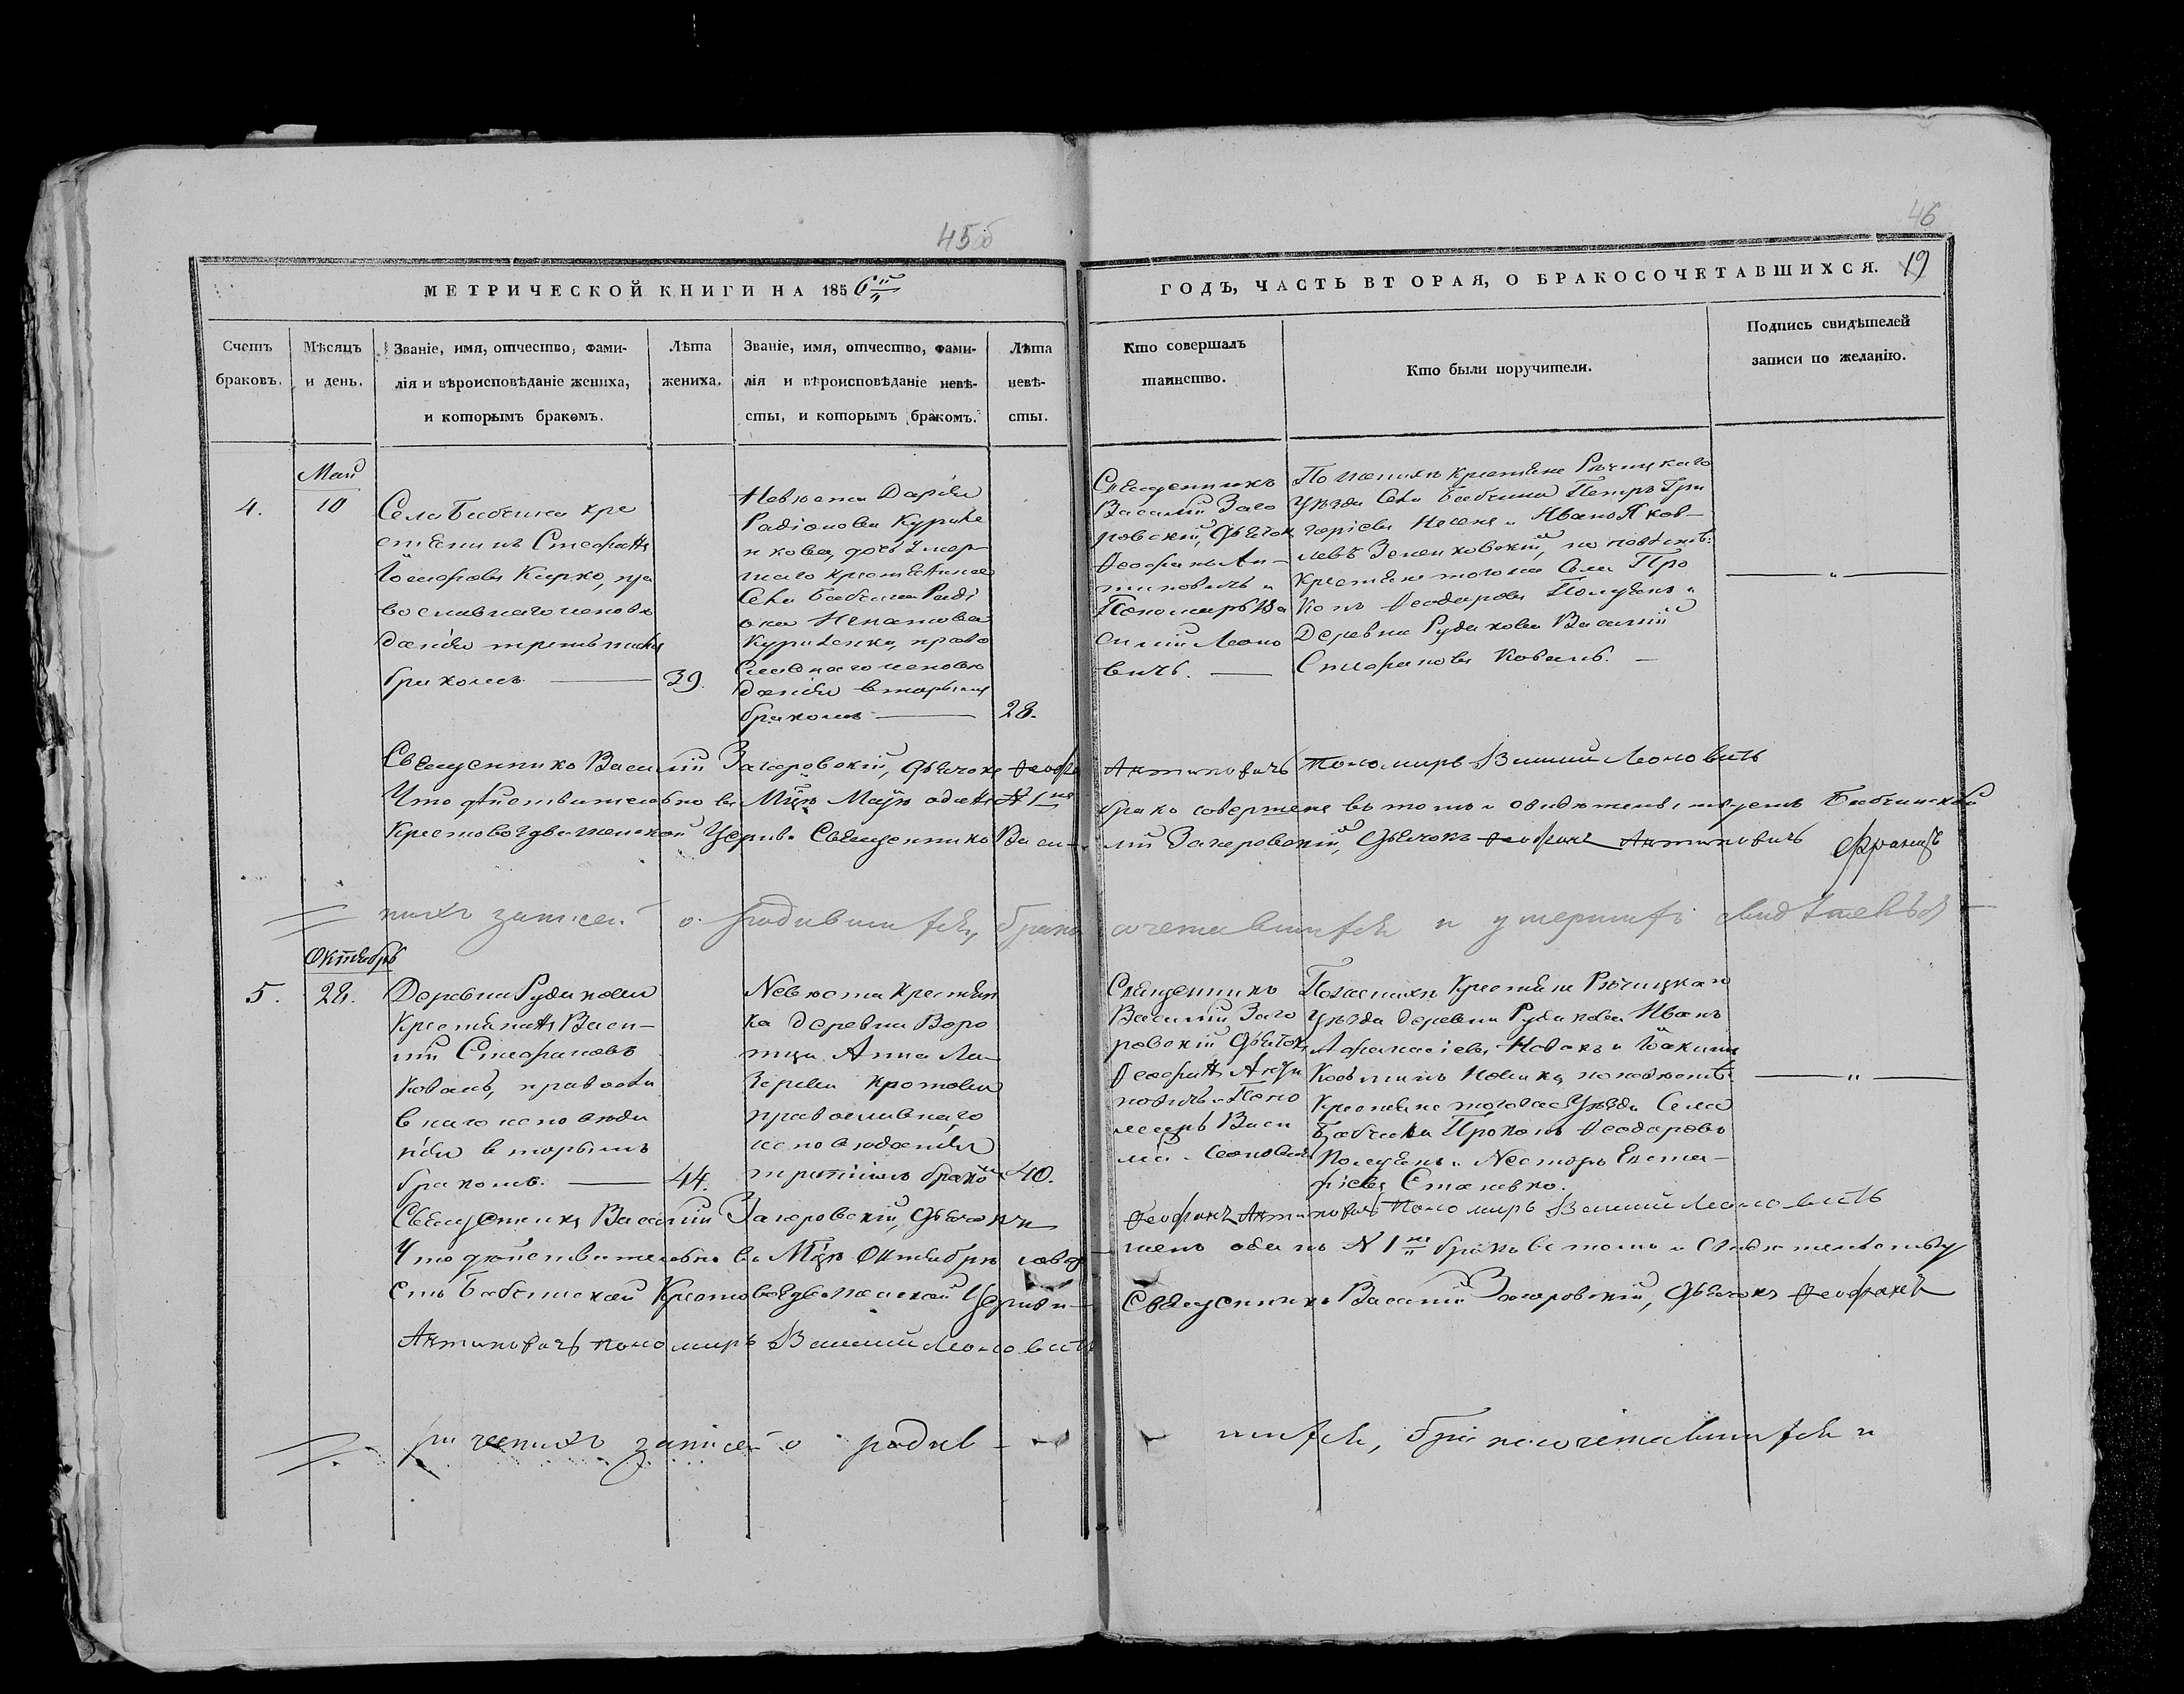 45об
46
МЕТРИЧЕСКОЙ КНИГИ НА 1856й
ГОДЪ, ЧАСТЬ ВТОРАЯ, О БРАКОСОЧЕТАВШИХСЯ.
19
Счетъ
браковъ.
Мѣсяцъ
и день.
Званіе, имя, отчество, фами-
лія и вѣроисповѣданіе жениха,
и которымъ бракомъ.
Лѣта
жениха.
Званіе, имя, отчество, фами-
лія и вѣроисповѣданіе невѣ-
сты, и которымъ бракомъ.
Лѣта
невѣ-
сты.
Кто совершалъ
таинство.
Кто были поручители.
Подпись свидѣтелей
записи по желанію.
4.
Май
10
Села Бабчина кре
стьянинъ Стефанъ
Іосифовъ Кирко, пра
вославнаго исповѣ
данія третьимъ
бракомъ —
39.
Невѣста Дарія
Радіонова
дочь умер-
шаго крестьянина
Села Бабчина Раді
она Игнатова
право
славнаго исповѣ
данія вторымъ
бракомъ —
28.
Священникъ
Василій Заго
ровскій, Дьячокъ
Феофанъ Ан-
типовичъ и
Пономарь Ва
силій Леоно
вичъ. —
По женихѣ крестьяне Рѣчицкаго
Уѣзда Села Бабчина Петръ Гри
горіевъ и Иванъ Яков-
левъ Зеньковскій, по невѣстѣ:
Крестьяне того же Села Про
копъ Феодоровъ и
Деревни Рудакова Василій
Стефановъ Коваль. —
— " —
Священникъ Василій Загоровскій, Дьячокъ Феофанъ
Антиповичъ Пономарь Василій Леоновичъ
Что дѣйствительно въ Мцѣ Маѣ одинъ № 1й
бракъ совершенъ въ томъ и свидѣтельствуетъ Бабчинской
Крестовоздвиженской Церкви Священникъ Васи-
лій Загоровскій, Дьячокъ Феофанъ Антиповичъ
записей о родившихся, брако
сочетавшихся и умершихъ
5.
Октябрь
28.
Деревни Рудакова
Крестьянинъ Васи-
лій Стефановъ
Коваль, правосла
внаго исповѣда
нія вторымъ
бракомъ. —
44.
Невѣста крестьян
ка деревни Воро
тца Анна Ла-
зарева Кротова
православнаго
исповѣданія
третіимъ бракомъ
40.
Священникъ
Василій Заго
ровскій Дьячокъ
Феофанъ Анти
повичъ и Поно
марь Васи
лій Леоновичъ
По женихѣ Крестьяне Рѣчицкаго
Уѣзда деревни Рудакова Иванъ
Афанасіевъ Новакъ и Іоакимъ
Козьминъ по невѣстѣ
Крестьяне того же Уѣзда Села
Бабчина Прокопъ Феодоровъ
и Несторъ Евста-
фіевъ Станевко.
— " —
Священникъ Василій Загоровскій, Дьячокъ
Феофанъ Антиповичъ Пономарь Василій Леоновичъ
Что дѣйствительно въ Мцѣ Октябрѣ совер-
шенъ одинъ № 1й бракъ въ томъ и свидѣтельству
етъ Бабчинской Крестовоздвиженской Церкви
Священникъ Василій Загоровскій, Дьячокъ Феофанъ
Антиповичъ Пономарь Василій Леоновичъ
записей о родив-
шихся, бракосочетавшихся и